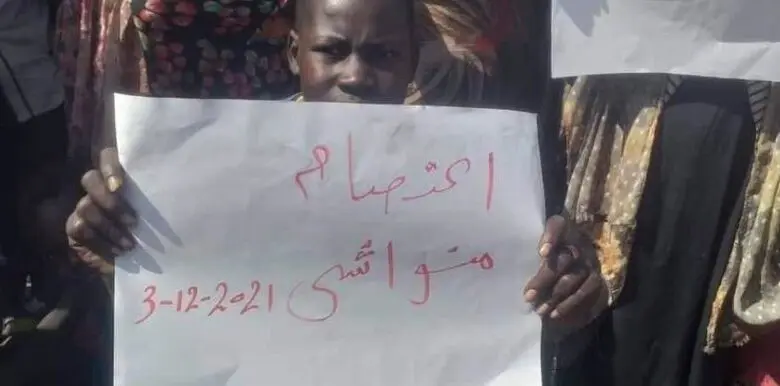 اعتصام
منواشى
3-12-2021